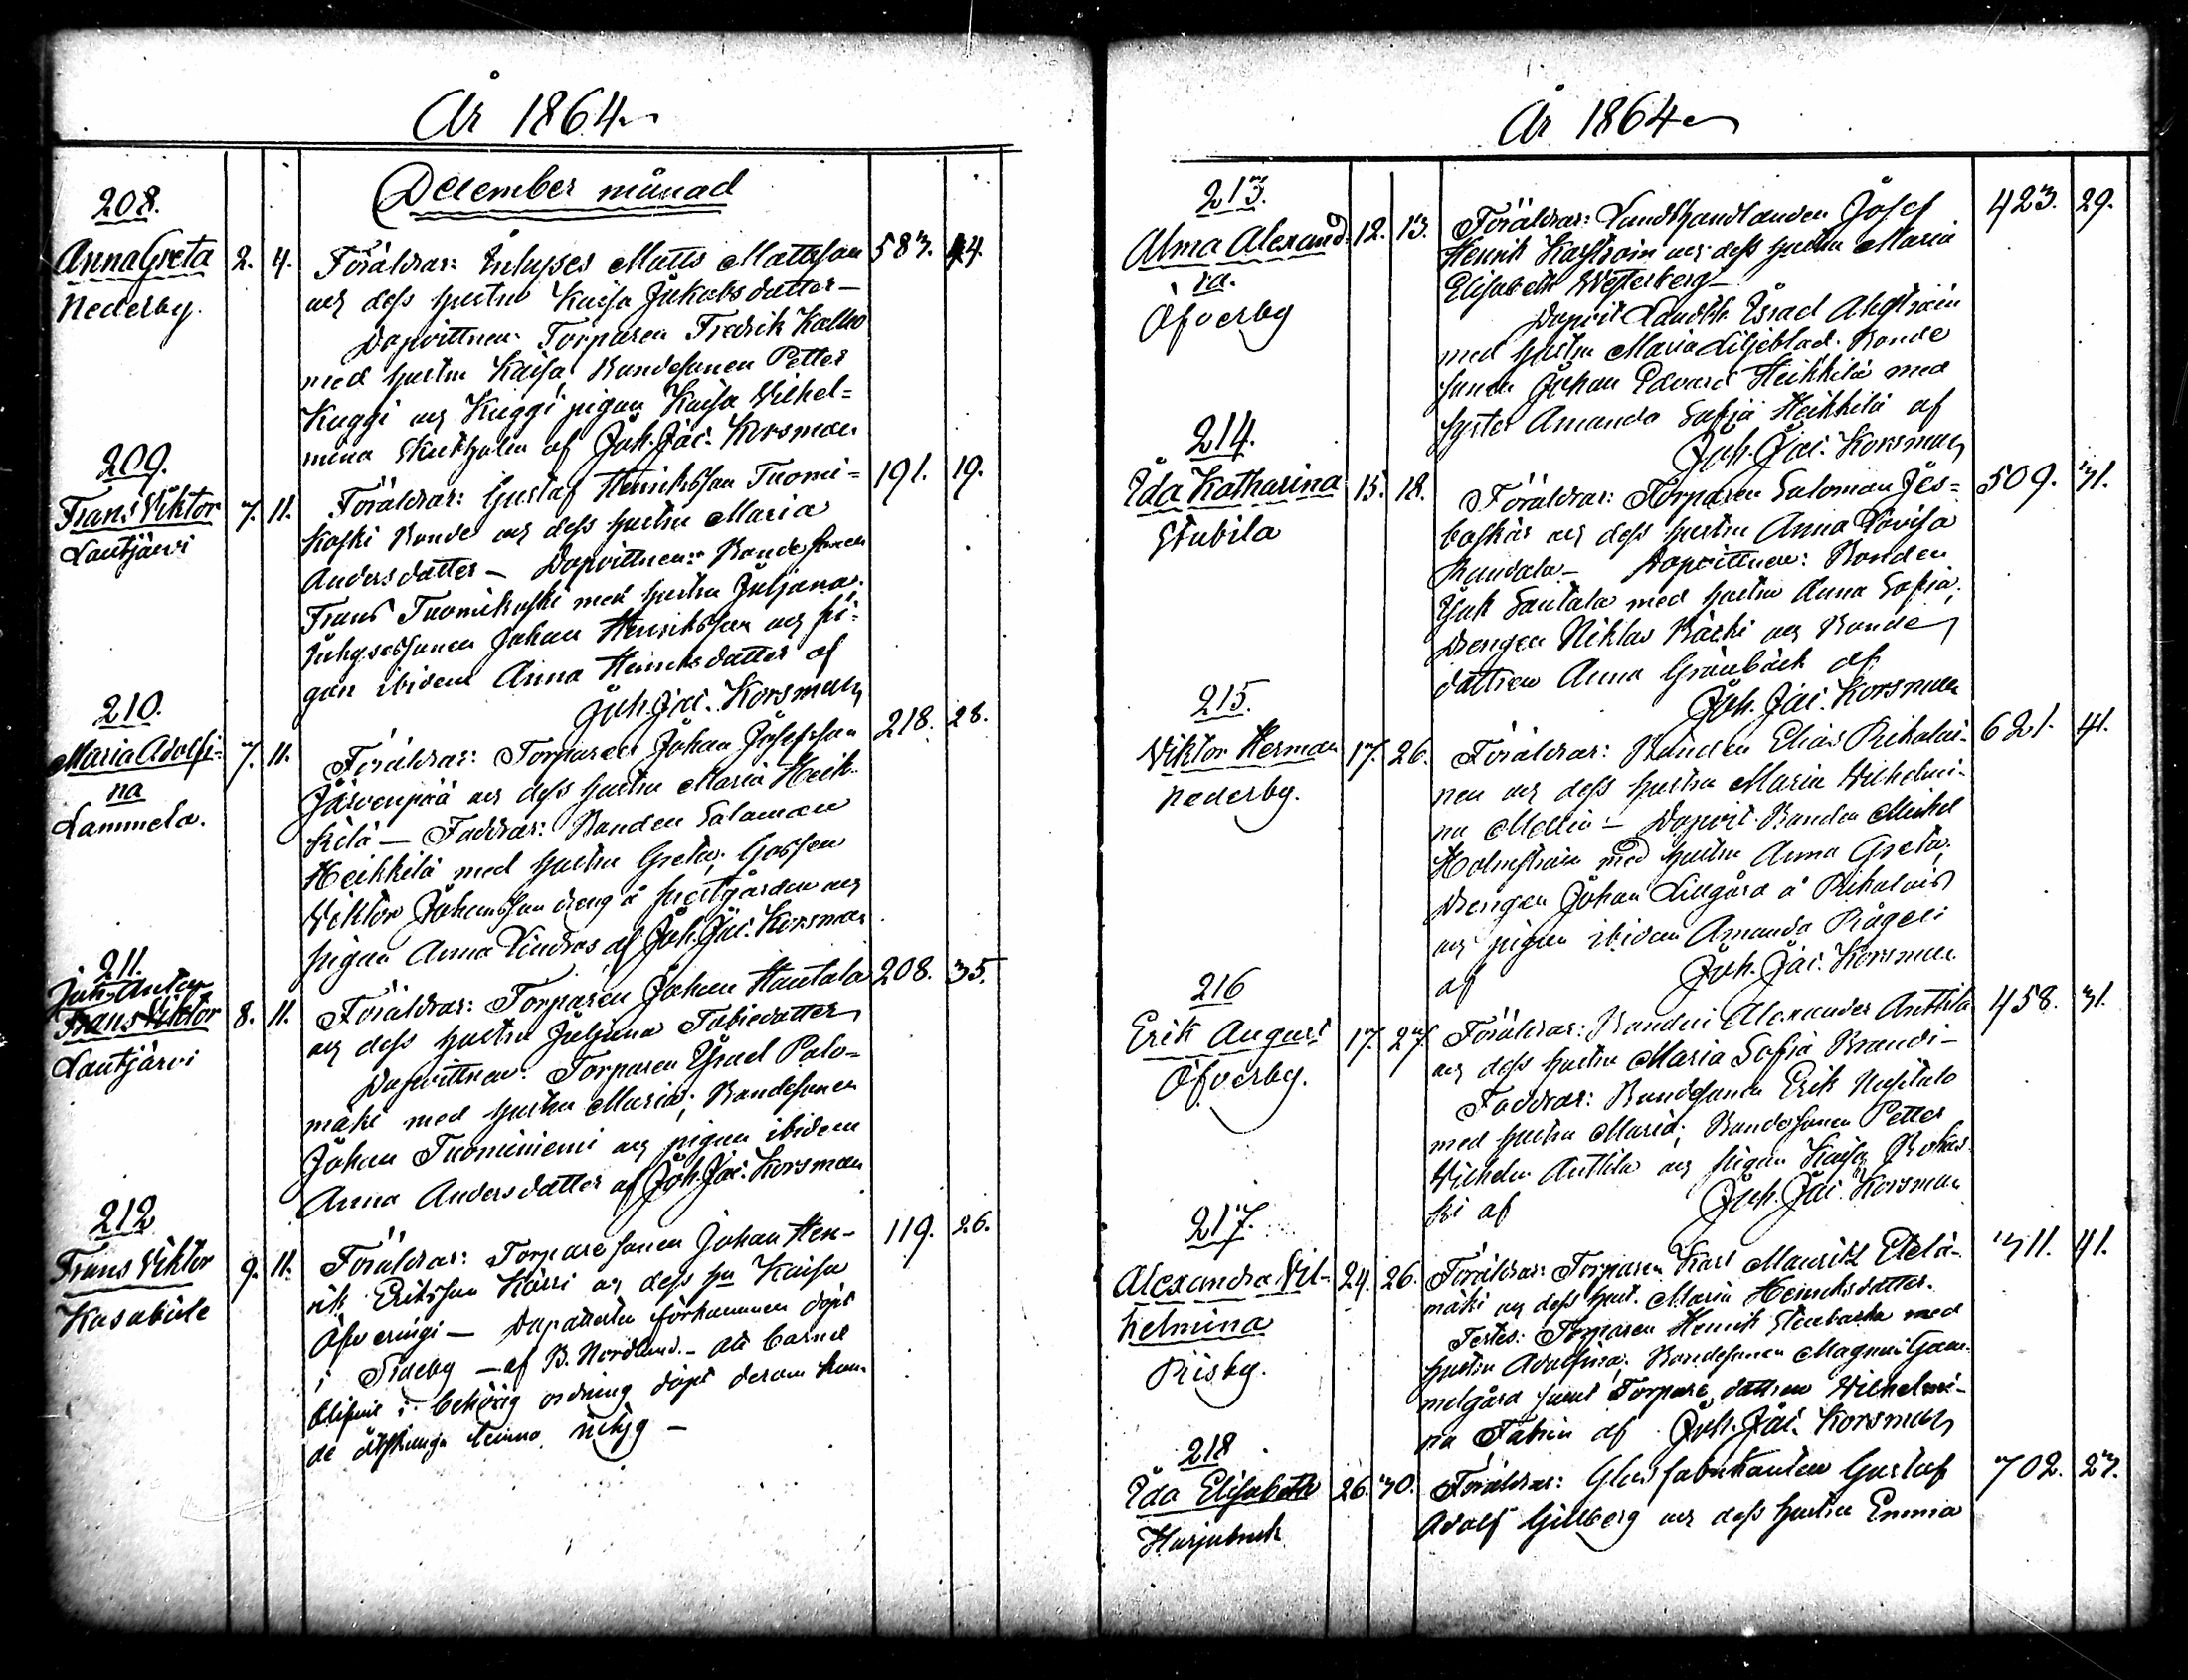 År 1864
December månad
208.
Anna Greta 2. 4.
Nederby.
Föräldrar: Inhyses Matts Mattsson 583. 44.
och dess hustru Kaisa Jakobsdotter —
Dopvittnen: Torparen Fredrik Kallio
med hustru Kaisa, Bondesonen Petter
Kuggi och Kuggi pigan Kaisa Vilhel=
mina af Joh. Jac. Korsman
209.
Frans Viktor 7. 11.
Lautjärvi
Föräldrar: Gustaf Henriksson Tuomi= 191. 19.
koski Bonde och dess hustru Maria
Andersdotter — Dopvittnen: Bondesonen
Frans Tuomikoski med hustru Juliana,
Inhysessonen Johan Henriksson och pi=
gan ibidem Anna Henriksdotter af
Joh. Jac. Korsman
210.
Maria Adolfi= 7. 11.
na
Lammela.
Föräldrar: Torparen Johan Josefsson 218. 28.
Järvenpää och dess hustru Maria Heik=
kilä — Faddrar: Bonden Salomon
Heikkilä med hustru Greta; Gossen
Viktor Johansson dreng å prestgården och
pigan Anna af Joh. Jac. Korsman
211.
Joh. Anton
Frans Viktor 8. 11.
Lautjärvi
Föräldrar: Torparen Johan Hautala 208. 35.
och dess hustru Juliana Tobiedotter
Dopvittnen: Torparen Israel Palo=
mäki med hustru Maria; Bondesonen
Johan Tuominiemi och pigan ibidem
Anna Andersdotter af Joh. Jac. Korsman
212
Frans Viktor 9. 11.
Kasaböle
Föräldrar: Torparesonen Johan Hen= 119. 26.
rik Eriksson Kärri och dess hu Kaisa
Dopattesten förkommen döpt
i Sideby — af B. Nordlund. — Att barnet
blifvit i behörig ordning döpt derom kun=
de
År 1864
213.
Alma Alexand= 12. 13.
ra.
Öfverby
Föräldrar: Landthandlanden Josef 423. 29.
Henrik och dess hustru Maria
Elisabeth Westerberg —
Dopvit. Landth. Israel
med hustru Maria Liljeblad. Bonde
sonen Johan Edvard Heikkilä med
syster Amanda Sofia Heikkilä af
Joh. Jac. Korsman
214.
Ida Katharina 15. 18.
Stubila
Föräldrar: Torparen Salomon 509. 31.
och dess hustru Anna Lovisa
Dopvittnen: Bonden
Isak Santala med hustru Anna Sofia;
Drengen Niklas Bäcki och Bonde
dottren Anna Granbäck af
Joh. Jac. Korsman
215.
Viktor Herman 17. 26.
Nederby.
Föräldrar: Bonden Elias Rikalai= 621. 41.
nen och dess hustru Maria Wilhelmi=
na — Dopvit. Bonden Mickel
Holmström med hustru Anna Greta,
Drengen Johan Lillgård å
och pigan ibidem Amanda
af Joh. Jac. Korsman
216
Erik August 17. 27.
Öfverby.
Föräldrar: Bonden Alexander Anttila 458. 31.
och dess hustru Maria Sofia Brandi —
Faddrar: Bondesonen Erik
med hustru Maria; Bondesonen Petter
Vilhelm Anttila och pigan Kaisa
ki af Joh. Jac. Korsman
217.
Alexandra Vil= 24. 26.
helmina
Riisby.
Föräldrar: Torparen Karl Mauritz Etelä= 311. 41.
mäki och dess hust. Maria Henriksdotter.
Testes: Torparen Henrik Stenbacka med
hustru Adolfina; Bondesonen Magnus Gam=
melgård samt Torpare dottren Wilhelmi=
na af Joh. Jac. Korsman
218
Ida Elisabeth 26. 30.
Föräldrar: Glasfabrikanten Gustaf 702. 27.
Adolf Gillberg och dess hustru Emma